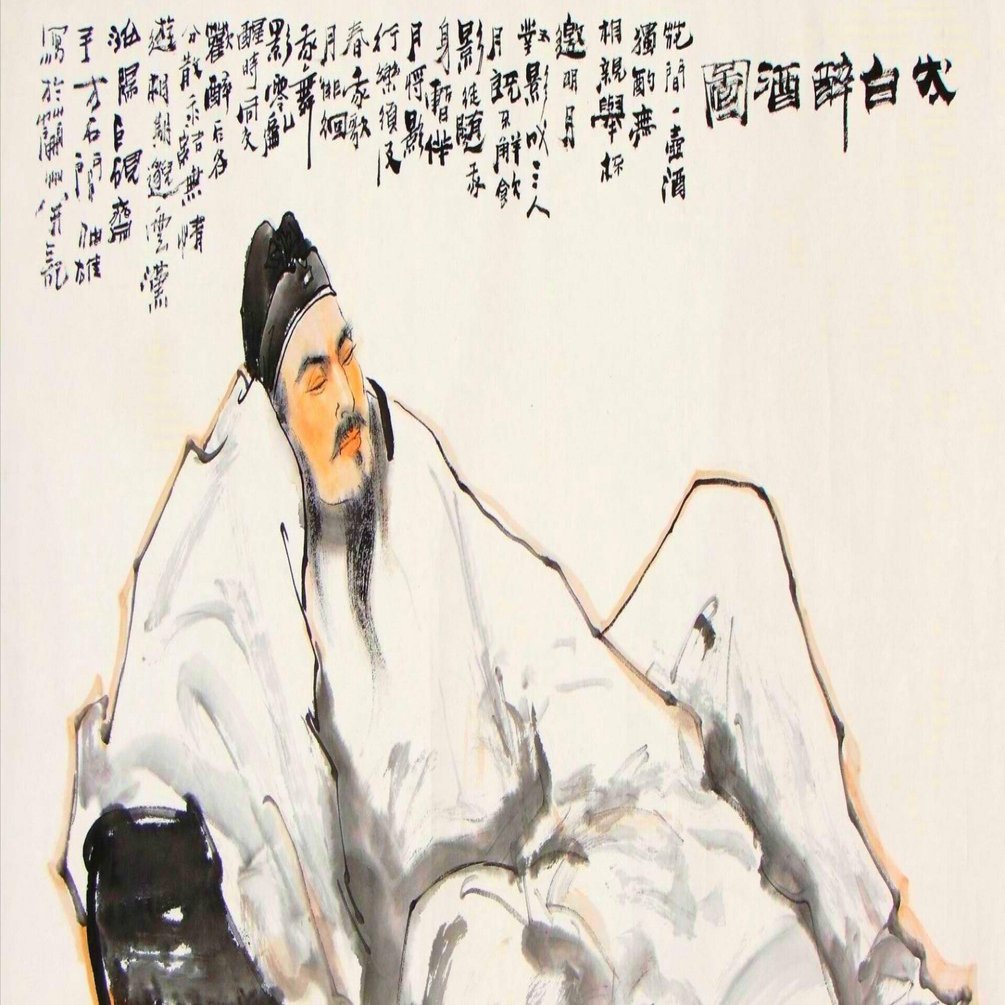 太白醉酒圖
花間一壺酒
獨酌無
相親舉杯
邀明月
對影成三人
月既不解飲
影徒隨我
身暫伴
月將影
行樂須及
春我歌
月徘徊
我舞
影零亂
醒時同交
歡醉后各
分散永結無情
遊相期邈雲漢
巨硯齋
石門
寫於瀛洲并記